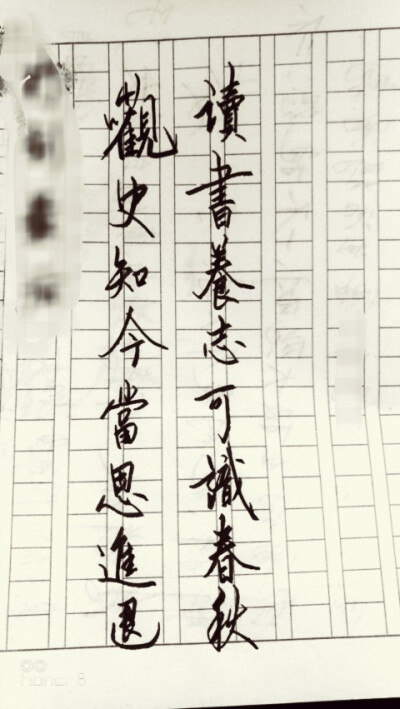 讀書養志可識春秋
觀史知今當思進退
honor 8